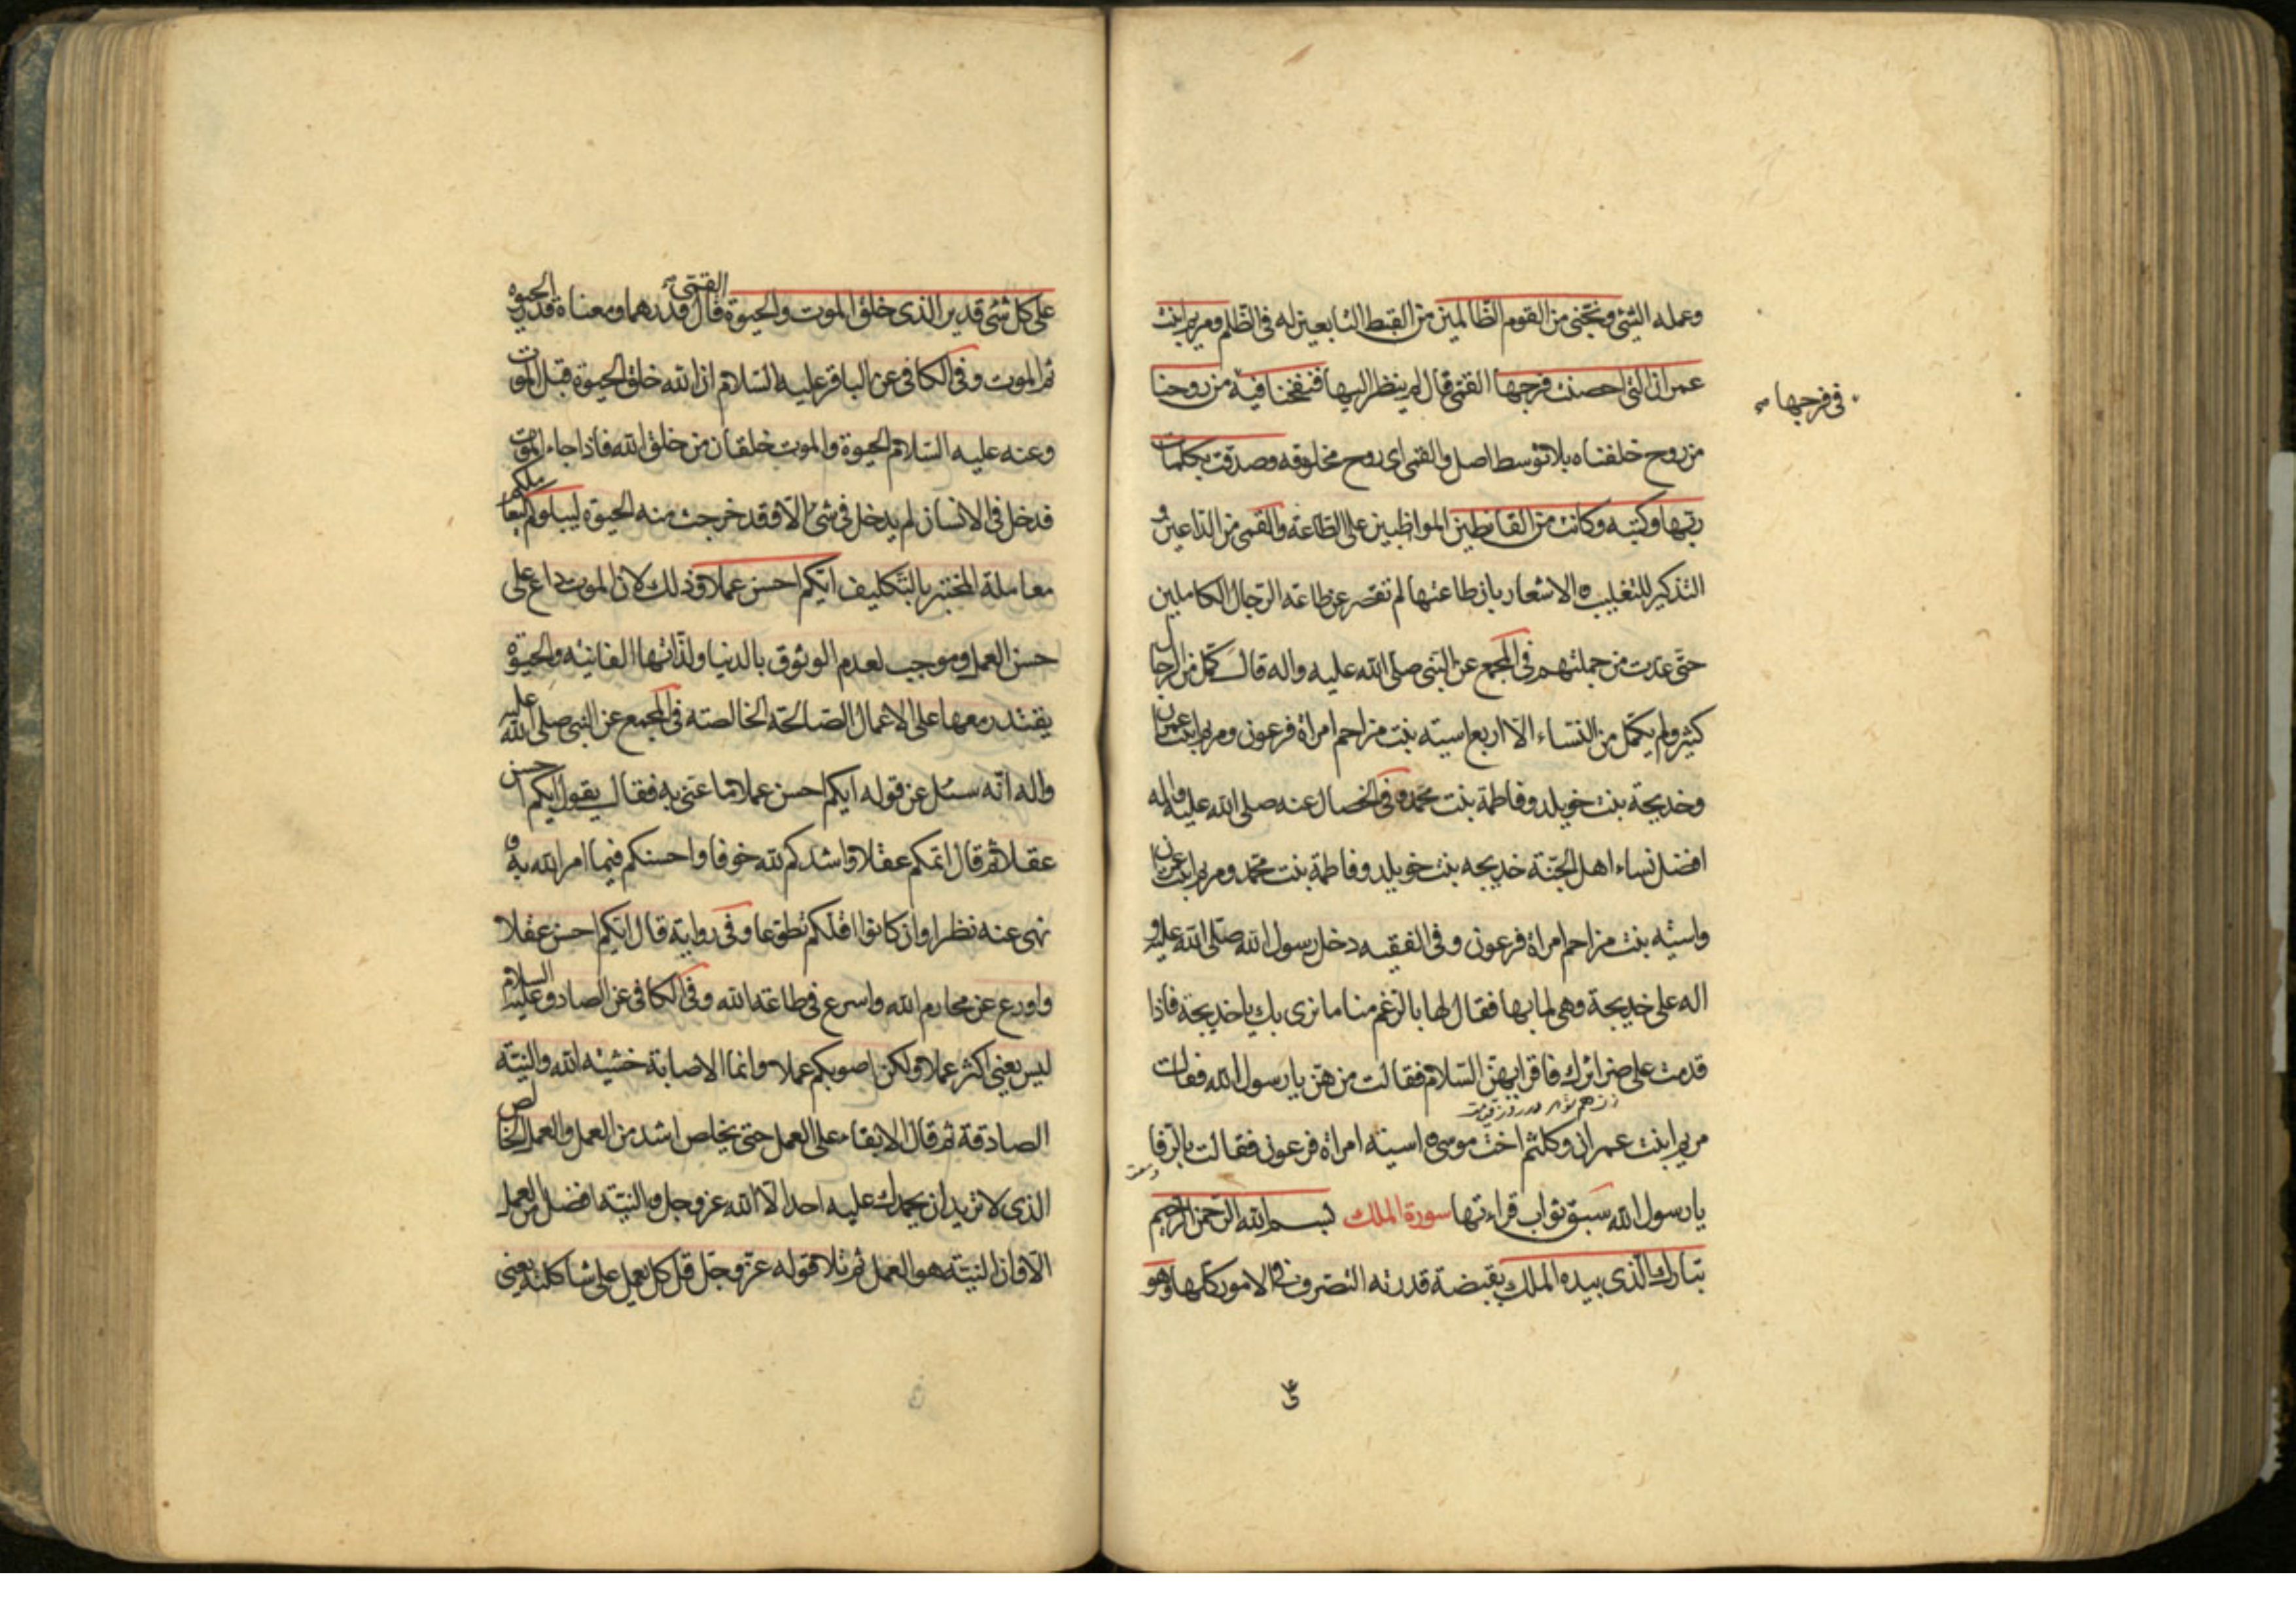 وعمله السّيئ ونجّنى من القوم الظالمين من القبط التابعين له فى الظلم ومريم ابنت
عمران التى احصنت فرجها القمّى قال لم ينظر اليها فنفخنا فيه من روحنا
فى فرجها
من روح خلقناه بلا توسط اصل والقمى اى روح مخلوقه وصدقت بكلمات
ربها وكتبه وكانت من القانطين المواظبين على الطاعة والقمى من الداعين و
التذكير للتغليب والاشعار بان طاعتها لم تقصر عن طاعه الرجال الكاملين
حتى عدّت من جملتهم فى المجمع عن النبى صلى الله عليه واله قال كمل من الرجال
كثير ولم يكمل من النساء الّا اربع اسيته بنت مزاحم امراة فرعون ومريم ابنت عمران
وخديجة بنت خويلد وفاطمة بنت محمد وفى الخصال عنه صلى الله عليه واله
افضل نساء اهل الجنّة خديجه بنت خويلد وفاطمة بنت محمد ومريم ابنت عمران
واسيته بنت مزاحم امراة فرعون وفى الفقيه دخل رسول الله صلّى الله عليه و
اله على خديجة وهى لما بها فقال لها بالرغم منا ما نرى بك يا خديجة فاذا
قدمت على ضرائرك فاقرايهنّ السّلام فقالت من هنّ يا رسول الله فقالت
مريم ابنت عمران وكلثم اخت موسى و اسيته امراة فرعون فقالت بالرفا
يا رسول الله سبق ثواب قراءتها سورة الملك بسم الله الرّحمن الرّحيم
تبارك الّذى بيده الملك بقبضة قدرته التصرف فى الامور كلها وهو
على كل شئ قدير الذى خلق الموت والحيوة القمّى قال قدرهما ومعناه قدر الحيوة
ثم الموت وفى الكافى عن الباقر عليه السّلام ان الله خلق الحيوة قبل الموت
وعنه عليه السّلام الحيوة والموت خلقان من خلق الله فاذا جاء الموت
فدخل فى الانسان لم يدخل فى شئ الّا فقد خرجت منه الحيوة ليبلوكم ليعاملكم
معاملة المختبر بالتّكليف ايّكم احسن عملا وذلك لان الموت داع على
حسن العمل وموجب لعدم الوثوق بالدنيا ولذّاتها الفانيه والحيوة
يقتدر معها على الاعمال الصّالحة الخالصته فى المجمع عن النبى صلى الله عليه
واله انّه سئل عن قوله ايكم احسن عملا ما عنى به فقال يقول ايكم احسن
عقلا ثم قال اتمكم عقلا واشدكم لله خوفا واحسنكم فيما امر الله به و
نهى عنه نظرا وان كانوا اقلّكم تطوّعا وفى رواية قال ايّكم احسن عقلا
واورع عن محارم الله واسرع فى طاعة الله وفى الكافى عن الصادق عليه السلام
ليس يعنى اكثر عملا ولكن اصوبكم عملا وانما الاصابة خشيته الله والنيّته
الصادقة ثم قال الابقاء على العمل حتى يخلص اشد من العمل والعمل الخالص
الذى لا تريد ان يحمدك عليه احد الّا الله عز وجل والنيّته افضل من العمل
الّا وان النيّته هو العمل ثم تلا قوله عزّ وجلّ قل كل يعمل على شاكلته يعنى